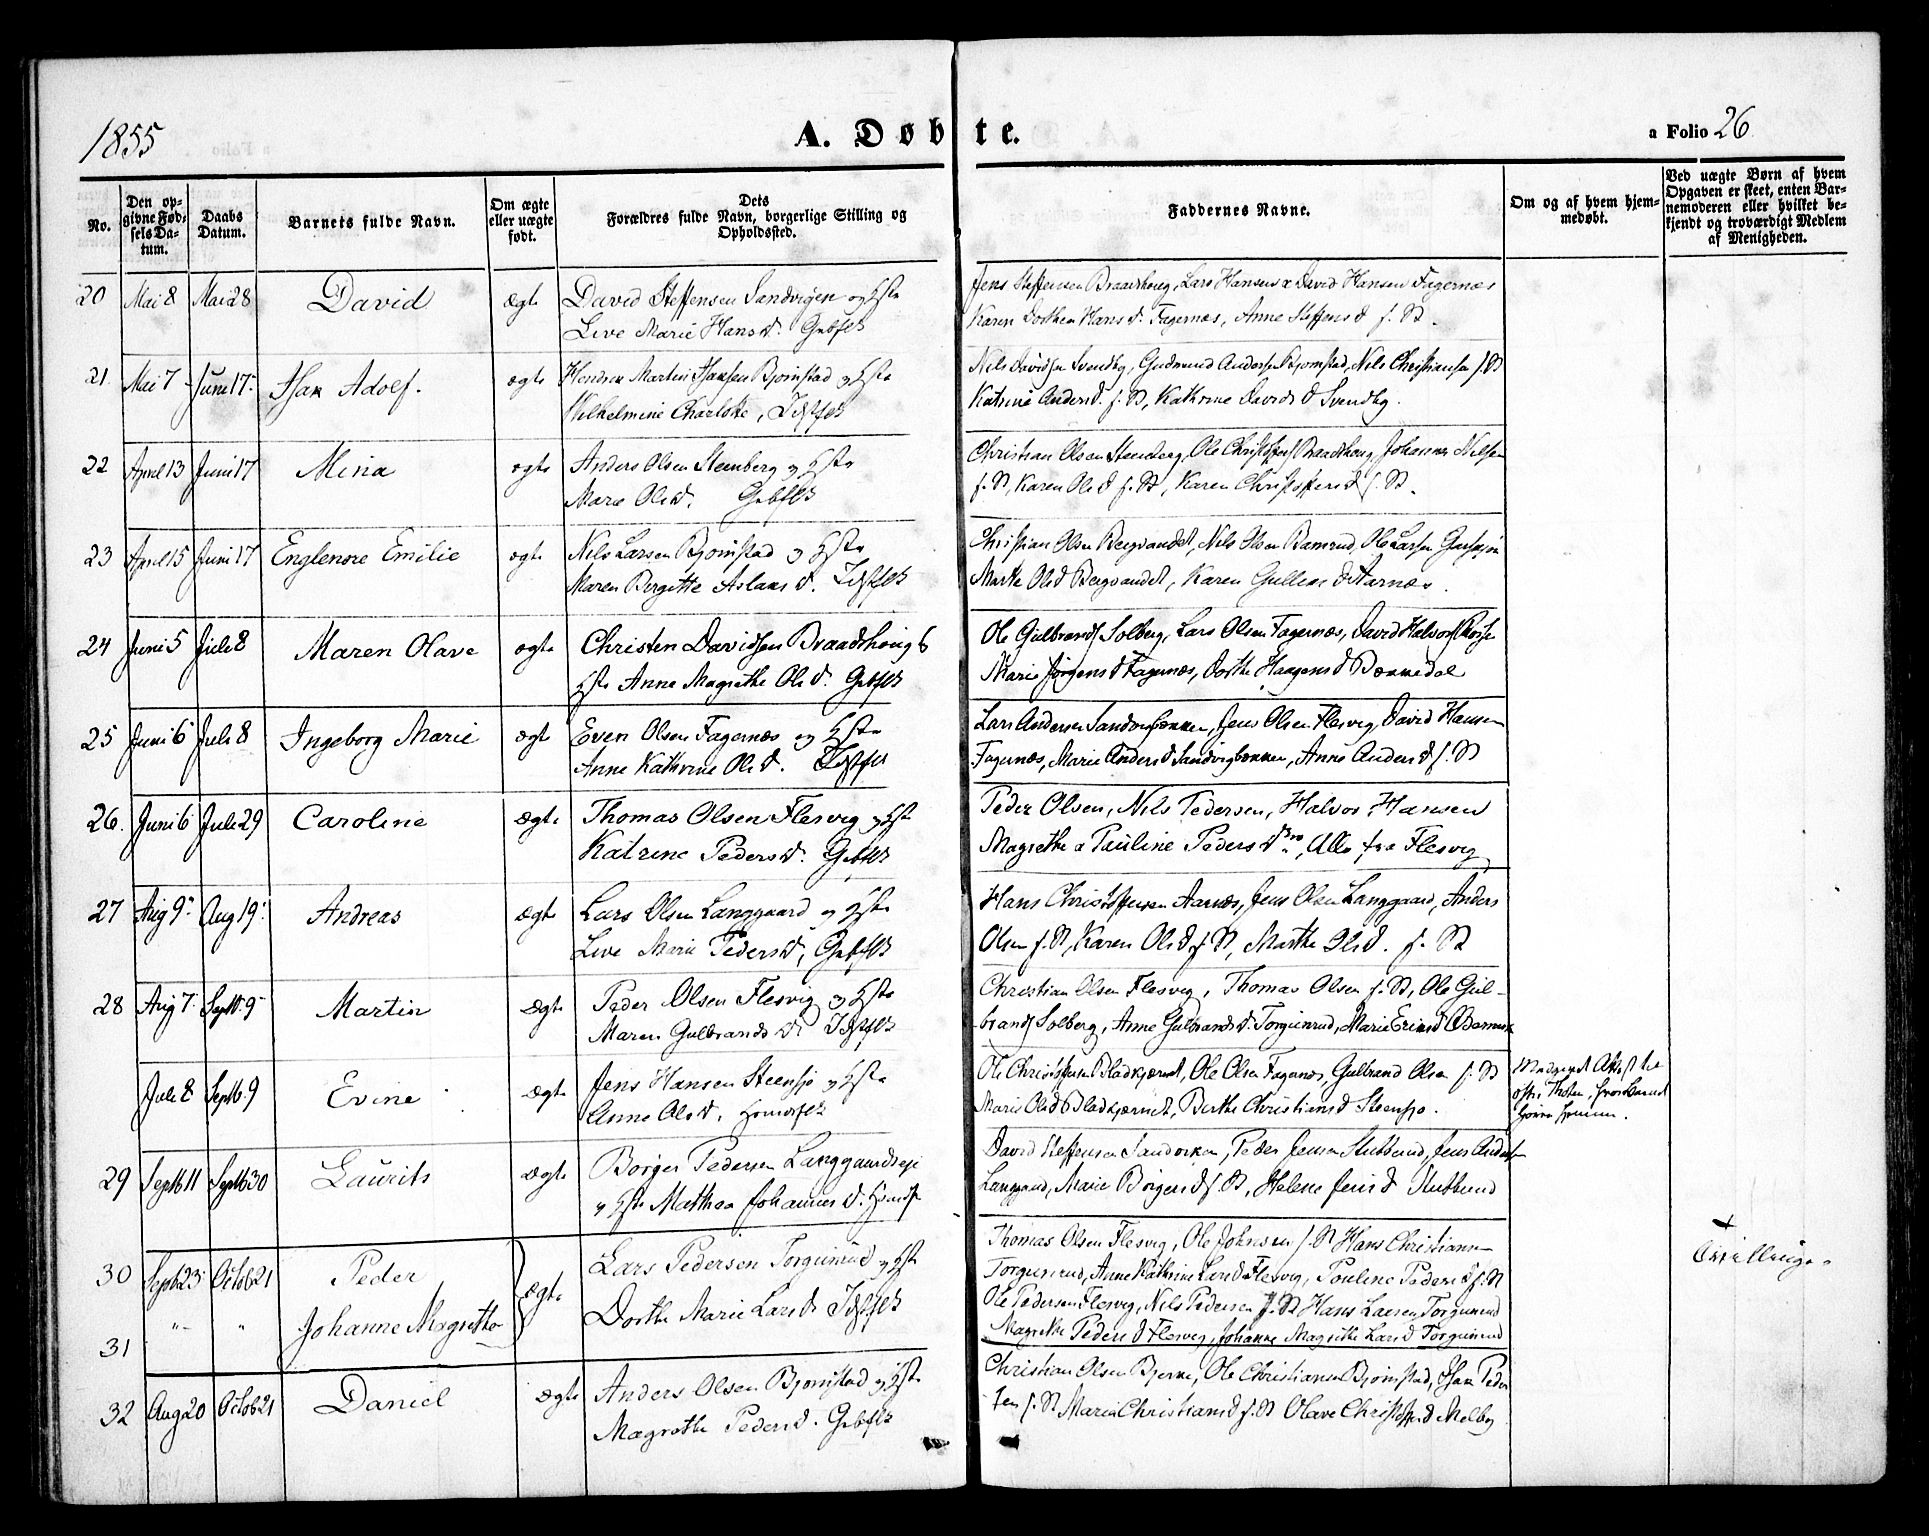 1855
A. Døbte.
a Folio 26
No.
Den opgivne Fødsels Datum.
Daabs Datum.
Barnets fulde Navn.
Om ægte eller uægte født.
Dets Forældres fulde Navn, borgerlige Stilling og Opholdssted.
Faddernes Navne.
Om og af hvem hjemmedøbt.
Ved uægte Børn af hvem Opgaven er skeet, enten Barnemoderen eller hvilket bekjendt og troværdigt Medlem af Menigheden.
20 Mai 8 Mai 28 David ægte David Steffensen Sandvigen og Hst
Live Marie Hansd. Gbflk
Jens Steffensen Braadhoug, Lars Hansen & David Hansen Fagernæs
Karen Dorthea Hansd. Fagernæs, Anne Steffensd f. St.
21 Mai 7 Juni 17 Isak Adolf. ægte Hendrik Martin Hansen Bjørnstad og Hst
Wilhelmine Charlotte, Idstflk
Nils Davidsen Svendby, Gudmund Andersen Bjørnstad, Nils Christiansen f. St
Katrine Andersd. f. St, Kathrine Davidsd Svendby.
22 April 13 Juni 17 Mina ægte Anders Olsen Steenberg og Hst
Marie Olsd. Gbflk
Christian Olsen Steenberg, Ole Christoffers Braadhoug, Johannes Nilsen
f. St, Karen Olsd f. St, Karen Christoffersd f. St.
23 April 15 Juni 17 Englenore Emilie ægte Nils Larsen Bjørnstad og Hst
Maren Birgitte Aslaksd. Idstflk
Christian Olsen Bergvandet, Nils Olsen Ramrud, Ole Larsen
Marthe Olsd Bergvandet, Karen Gullessd Aarnæs.
24 Juni 5 Juli 8 Maren Olave ægte Christen Davidsen Braadhoug &
Hst Anne Magrethe Olsd. Gbflk
Ole Gulbrands Solberg, Lars Olsen Fagernæs, David Halvors
Marie Jørgensd Fagernæs, Dorthe Haagensd
25 Juni 6 Juli 8 Ingeborg Marie ægt Even Olsen Fagernæs og Hst
Anne Kathrine Olsd. Idstflk
Lars Andersen Sandvigbonken, Jens Olsen Flesvig, David Hansen
Fagernæs, Marie Andersd Sandvigbonken, Anne Andersd f. St
26. Juni 6 Juli 29 Caroline ægte Thomas Olsen Flesvig og Hst
Katrine Pedersd. Gbflk
Peder Olsen, Nils Pedersen, Halvor Hansen
Magrethe & Pauline Pedersd, Alle fra Flesvig
27 Aug 9 Aug 19 Andreas ægte Lars Olsen Langgaard og Hst
Live Marie Pedersd, Gbflk
Hans Christoffersen Aarnæs, Jens Olsen Langgaard, Anders
Olsen f. St, Karen Olsd f. St, Marthe Olsd. f. St
28 Aug 7 Septb. 9 Martin Ægte Peder Olsen Flesvig og Hst
Maren Gulbrandsd. Idstflk
Christian Olsen Flesvig, Thomas Olsen f. St, Ole Gul-
brands Solberg, Anne Gulbrandsd. Torgunrud, Marie
Juli 8 Septb. 9 Evine ægte Jens Hansen Steensjø og Hst
Anne Olsd.
Ole Christoffersen Bladkjærnet, Ole Olsen Fagernæs, Gulbrand Olsen f. St
Marie Olsd Bladkjærnet, Berthe Christiansd Steensjø.
29 Septb 11 Septb 30 Laurits ægte Børger Pedersen Langgaardseje
og Hst Mathea Johannesd.
David Steffensen Sandviken, Peder Jensen Stubberud, Jens Anders
Langgaard, Marie Børgersd f. St, Helene Jensd Stubberud
30 Septb 23 Octob 21 Peder
31 " " Johanne Magrethe
ægte Lars Pedersen Torgunrud og Hst
Dorthe Marie Larsd. Idstflk
Thomas Olsen Flesvig, Ole Johnsen f. St Hans Christians
Torgunrud, Anne Kathrine Larsd Flesvig, Pouline Pedersd f. St
Ole Pedersen Flesvig, Nils Pedersen f. St Hans Larsen Torgunrud
Magrethe Pedersd Flesvig, Johanne Magrethe Larsd Torgunrud
+
Tvillinge.
32 Aug 20 Octob 21 Daniel ægte Anders Olsen Bjørnstad og Hst
Magrethe Pedersd. Gbflk
Christian Olsen Bjerke, Ole Christiansen Bjørnstad, Isak Peder
sen f. St Marie Christiansd f. St Olave Christoffersd Melby